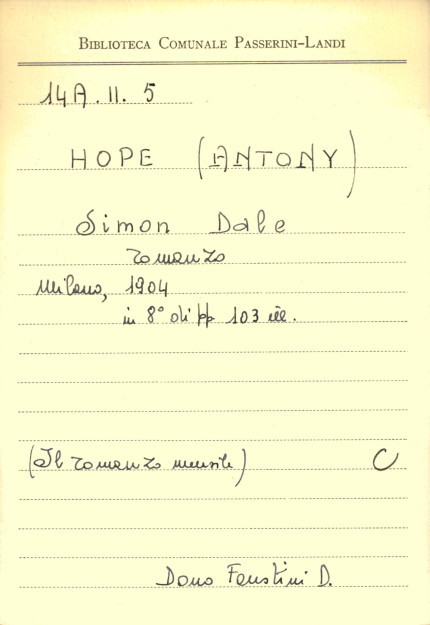 BIBLIOTECA COMUNALE PASSERINI-LANDI
14A.II.5
HOPE (ANTONY)
Simon Dale
romanzo
Milano, 1904
in 8° di pp 103 ill.
(Il romanzo mensile) C
Dono Faustini D.